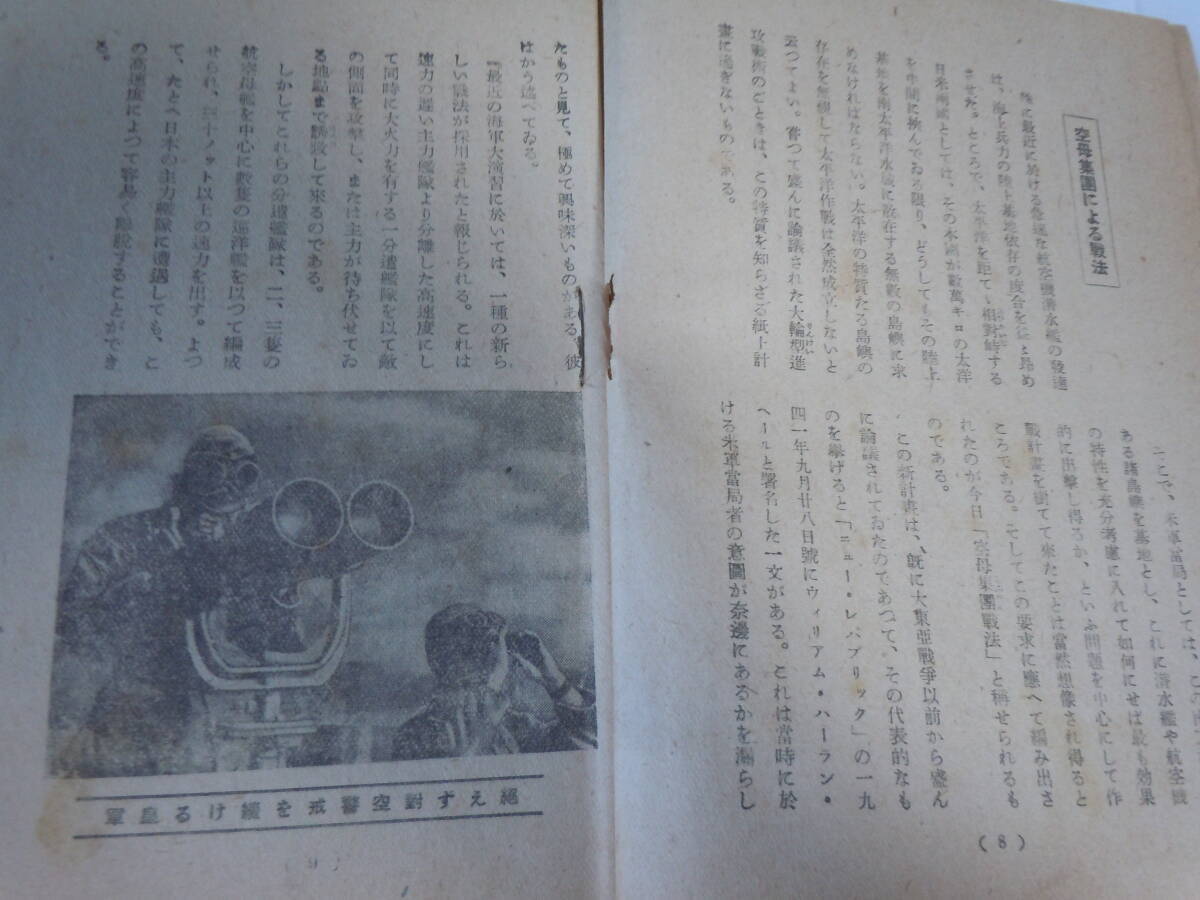 空母集團による戰法
殊に最近に於ける急速な航空機潜水艦の發達
は、海上兵力の陸上基地依存の度合を 昂め
させた。ところで、太平洋を距て、相對峙する
日米兩國としては、その本國が數萬キロの太洋
を中間に挾んでゐる限り、どうしてもその陸上
基地を南太平洋水域に散在する無數の島嶼に求
めなければならない。太平洋の特質たる島嶼の
存在を無視して太平洋作戰は全然成立しないと
云つてよい。嘗つて盛んに論議された大輪型進
りんけい
攻戰術のごときは、この特質を知らざる紙上計
畫に過ぎないものである。
そこで、米軍當局としては、こ
ある諸島嶼を基地とし、これに潜水艦や航空機
の特性を充分考慮に入れて如何にせば最も効果
的に出撃し得るか、といふ問題を中心にして作
戰計畫を樹てて來たことは當然想像され得ると
ころである。そしてこの要求に應へて編み出さ
れたのが今日「空母集團戰法」と稱せられるも
のである。
この新計畫は、既に大東亞戰爭以前から盛ん
に論議されてゐたのであつて、その代表的なも
のを擧げると「ニュー・レパブリック」の一九
四一年九月廿八日號にウィリアム・ハーラン・
ヘールと署名した一文がある。これは當時に於
ける米軍當局者の意圖が奈邊にあるかを漏らし
(8)
たものと見て、極めて興味深いものがある。彼
はかう述べてゐる。
『最近の海軍大演習に於いては、一種の新ら
しい戰法が採用されたと報じられる。これは
速力の遅い主力艦隊より分離した高速度にし
て同時に大火力を有する一分遣艦隊を以て敵
の側面を攻撃し、または主力が待ち伏せてゐ
る地點まで誘致して來るのである。
しかしてこれらの分遣艦隊は、二、三隻の
航空母艦を中心に數隻の巡洋艦を以つて編成
せられ、三十ノット以上の速力を出す。よつ
て、たとへ日本の主力艦隊に遭遇しても、こ
の高速度によつて容易く離脱することができ
る。
絕えず對空警戒を續ける皇軍
(9)